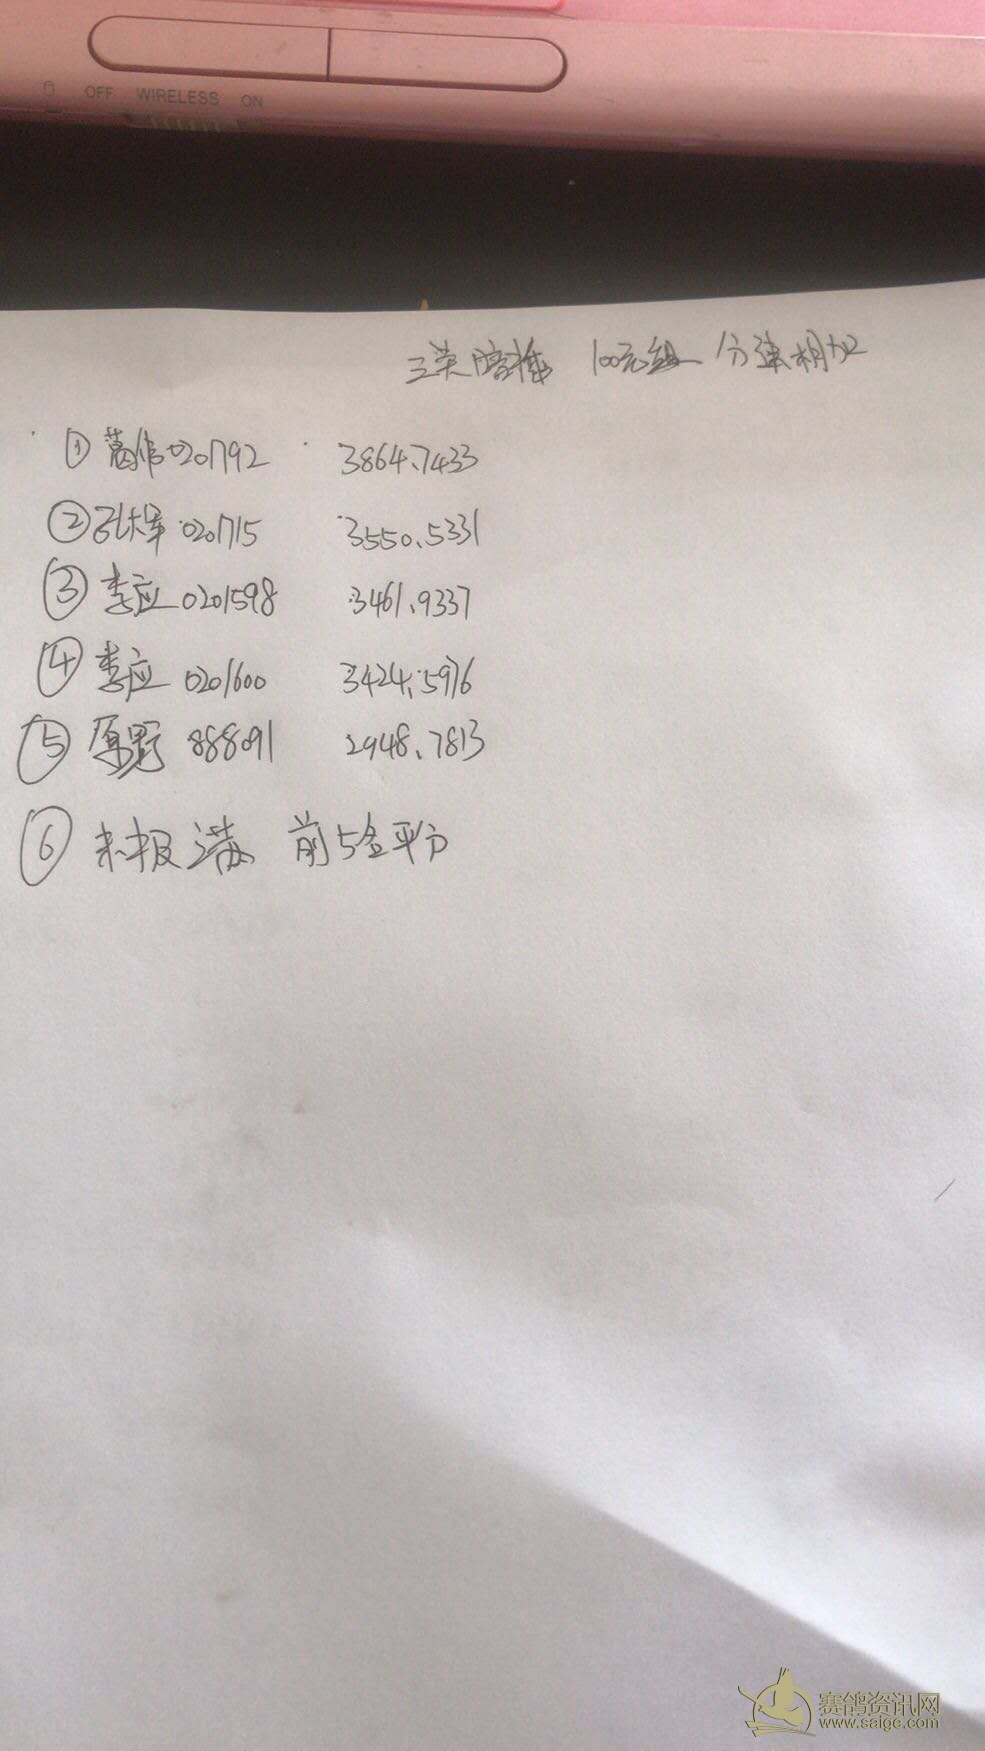 OFF WIRELESS ON
三关 100元组 分速相加
① 葛伟 0201792 3864.7433
② 孔祥 0201715 3550.5331
③ 李应 0201598 3461.9337
④ 李应 0201600 3424.5976
⑤ 原野 888091 2948.7813
⑥ 未报满 前5金平分
赛鸽资讯网
www.saigc.com